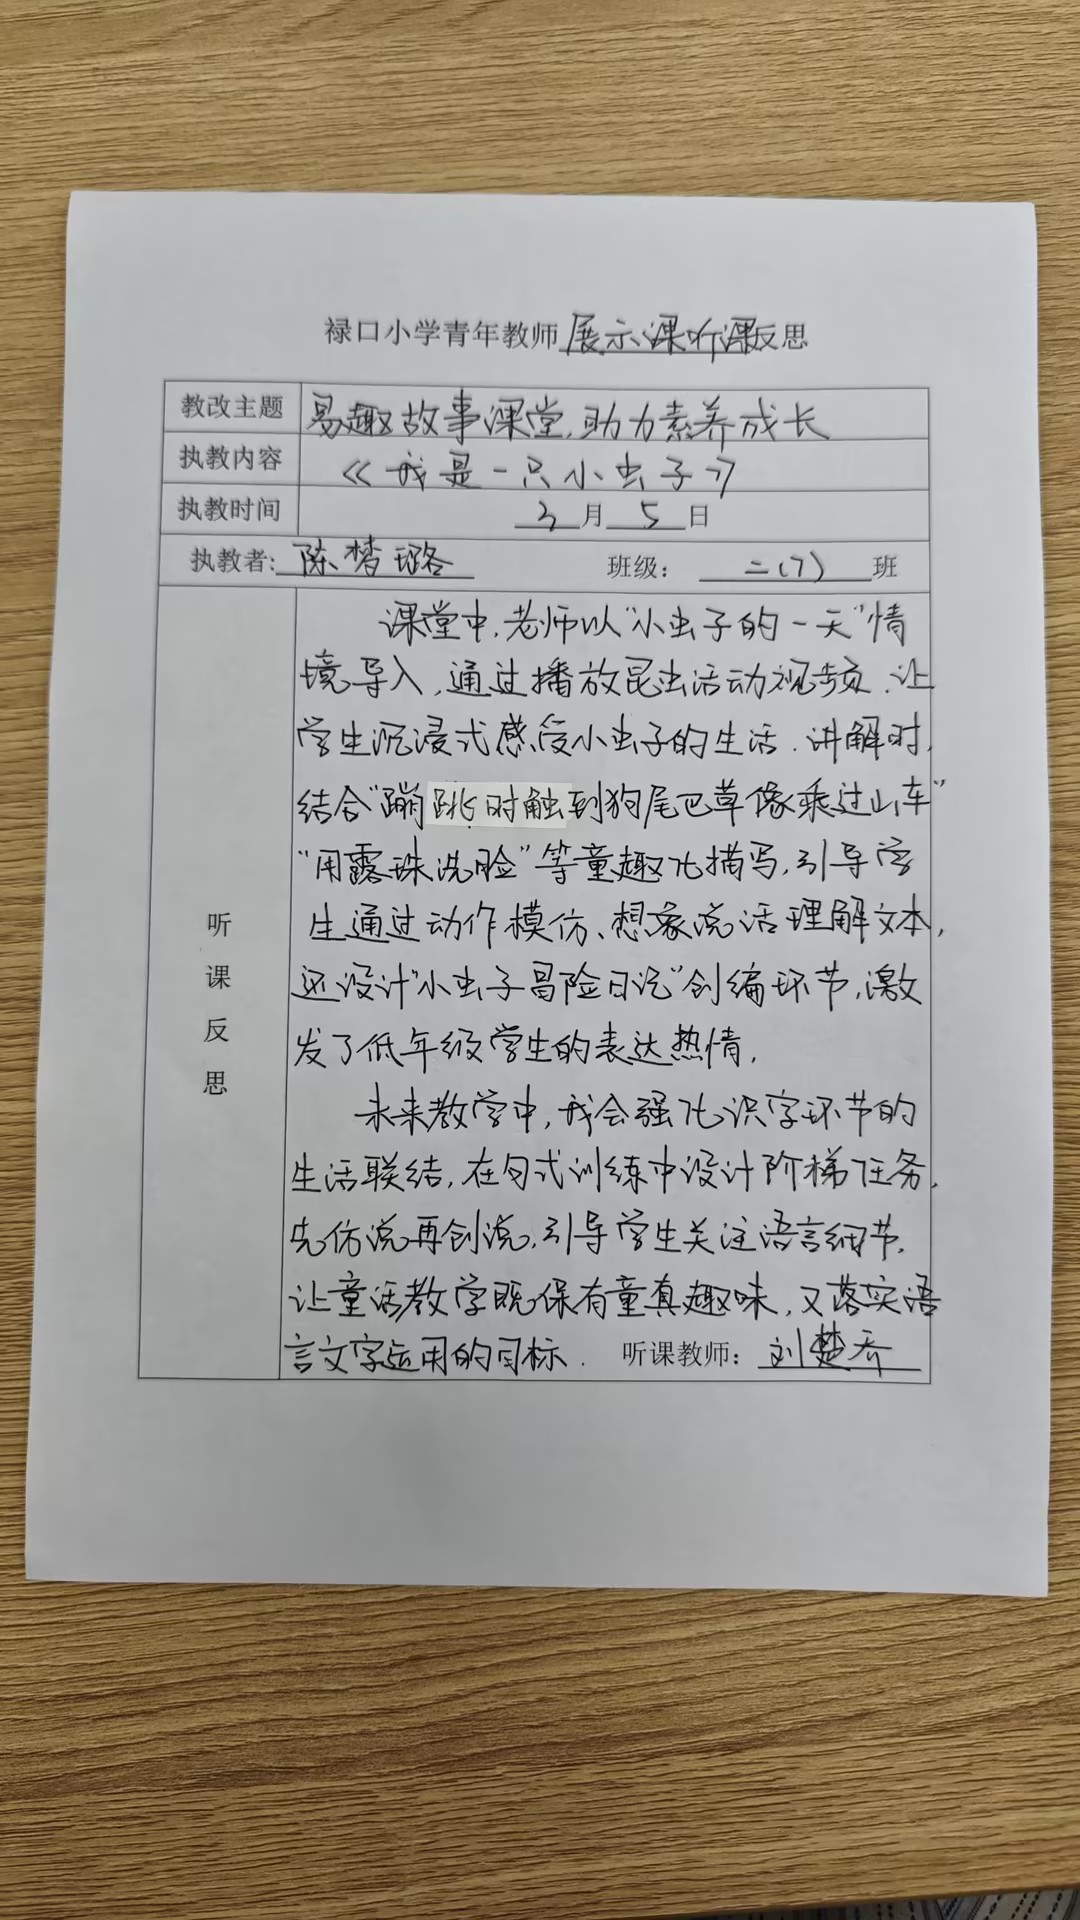 禄口小学青年教师展示课听课反思
教改主题 易趣故事课堂,助力素养成长
执教内容 《我是一只小虫子》
执教时间 3月5日
执教者:陈梦璐 班级:二(7)班
听课反思
课堂中,老师以“小虫子的一天”情
境导入,通过播放昆虫活动视频,让
学生沉浸式感受小虫子的生活.讲解时,
结合“蹦跳时触到狗尾巴草像乘过山车”
“用露珠洗脸”等童趣化描写,引导学
生通过动作模仿、想象说话理解文本,
还设计“小虫子冒险日记”创编环节,激
发了低年级学生的表达热情.
未来教学中,我会强化识字环节的
生活联结,在句式训练中设计阶梯任务,
先仿说再创说,引导学生关注语言细节,
让童话教学既保有童真趣味,又落实语
言文字运用的目标.
听课教师:刘楚乔